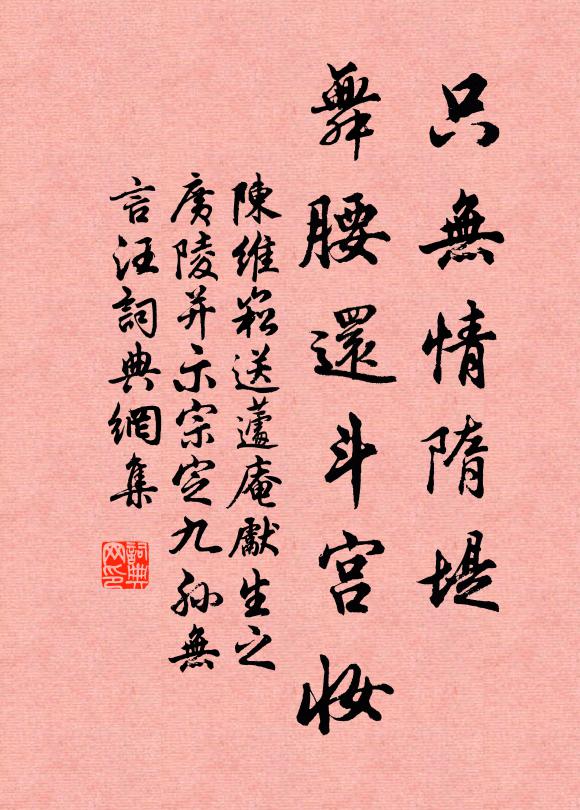 只無情隋堤
舞腰還斗宮妝
陳維崧送蘧庵獻生之
廣陵并示宗定九孫無
言汪詞典網集
詞典网印